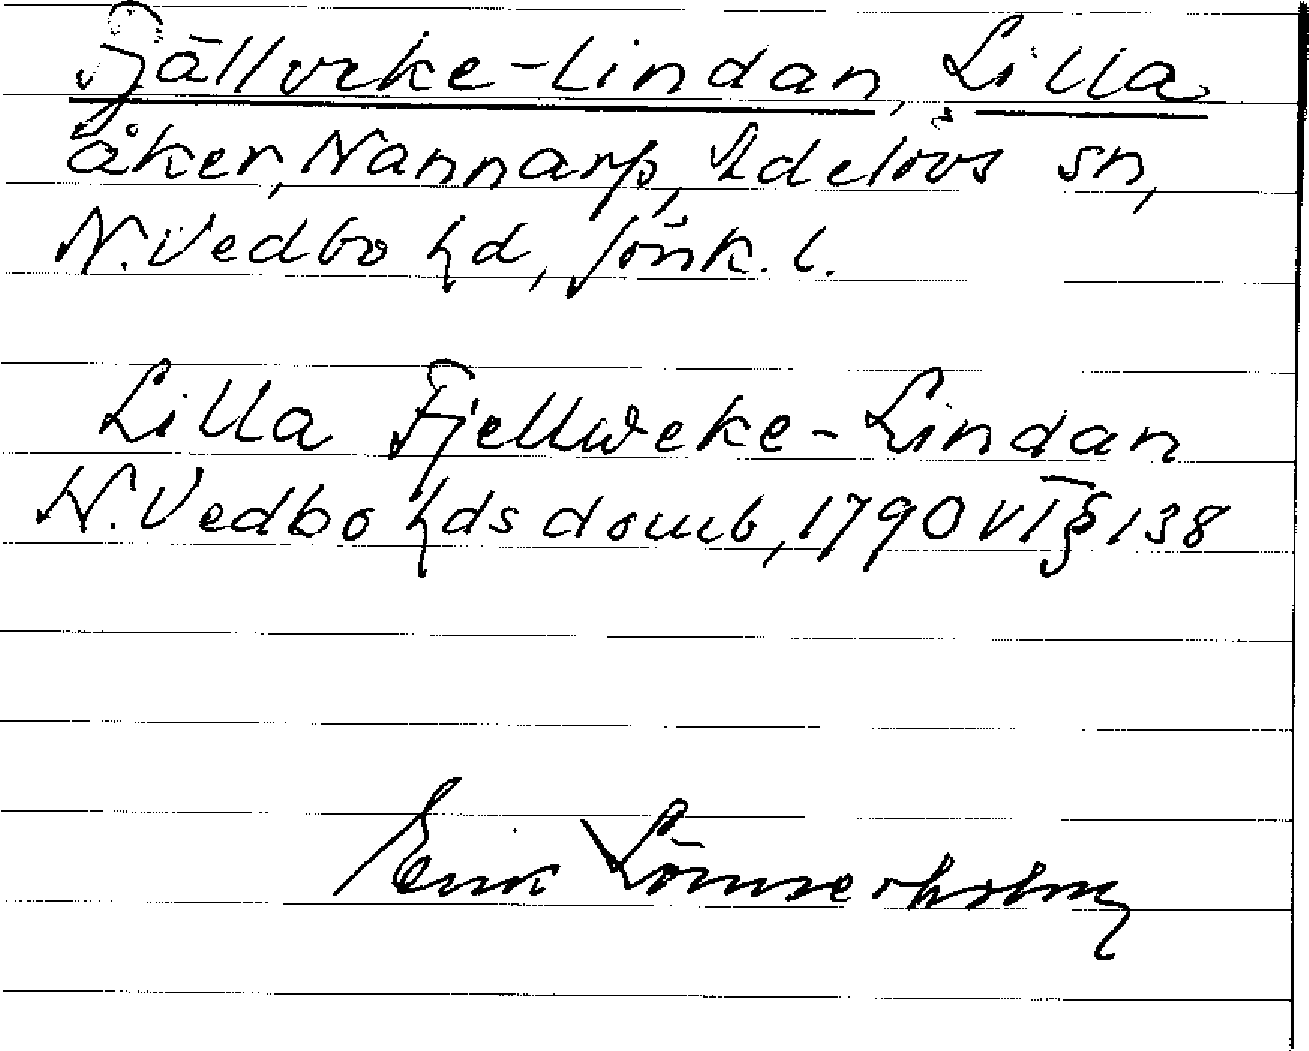 Fjällveke-Lindan, Lilla
åker, Nannarp, Edelövs sn,
N. Vedbo hd, Jönk. l.
Lilla Fjellweke-Lindan
N. Vedbo hds domb, 1790 VI § 138
Erik